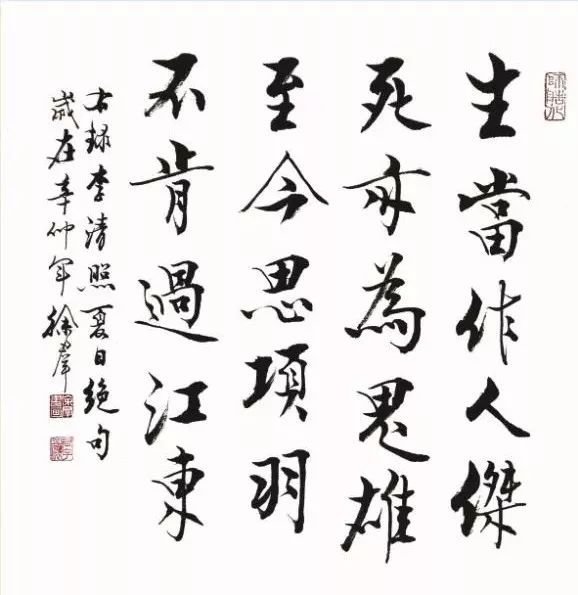 生當作人傑
死亦為鬼雄
至今思項羽
不肯過江東
右錄李清照夏日絕句
歲在辛卯年徐犖